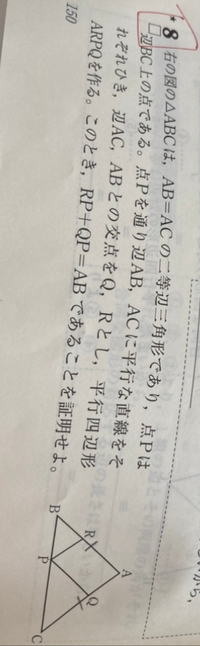 *8 右の図の△ABCは，AB=ACの二等辺三角形であり，点Pは
辺BC上の点である。点Pを通り辺AB，ACに平行な直線をそ
れぞれひき，辺AC，ABとの交点をQ，Rとし，平行四辺形
ARPQを作る。このとき，RP+QP=ABであることを証明せよ。
A
R
Q
B
P
C
150